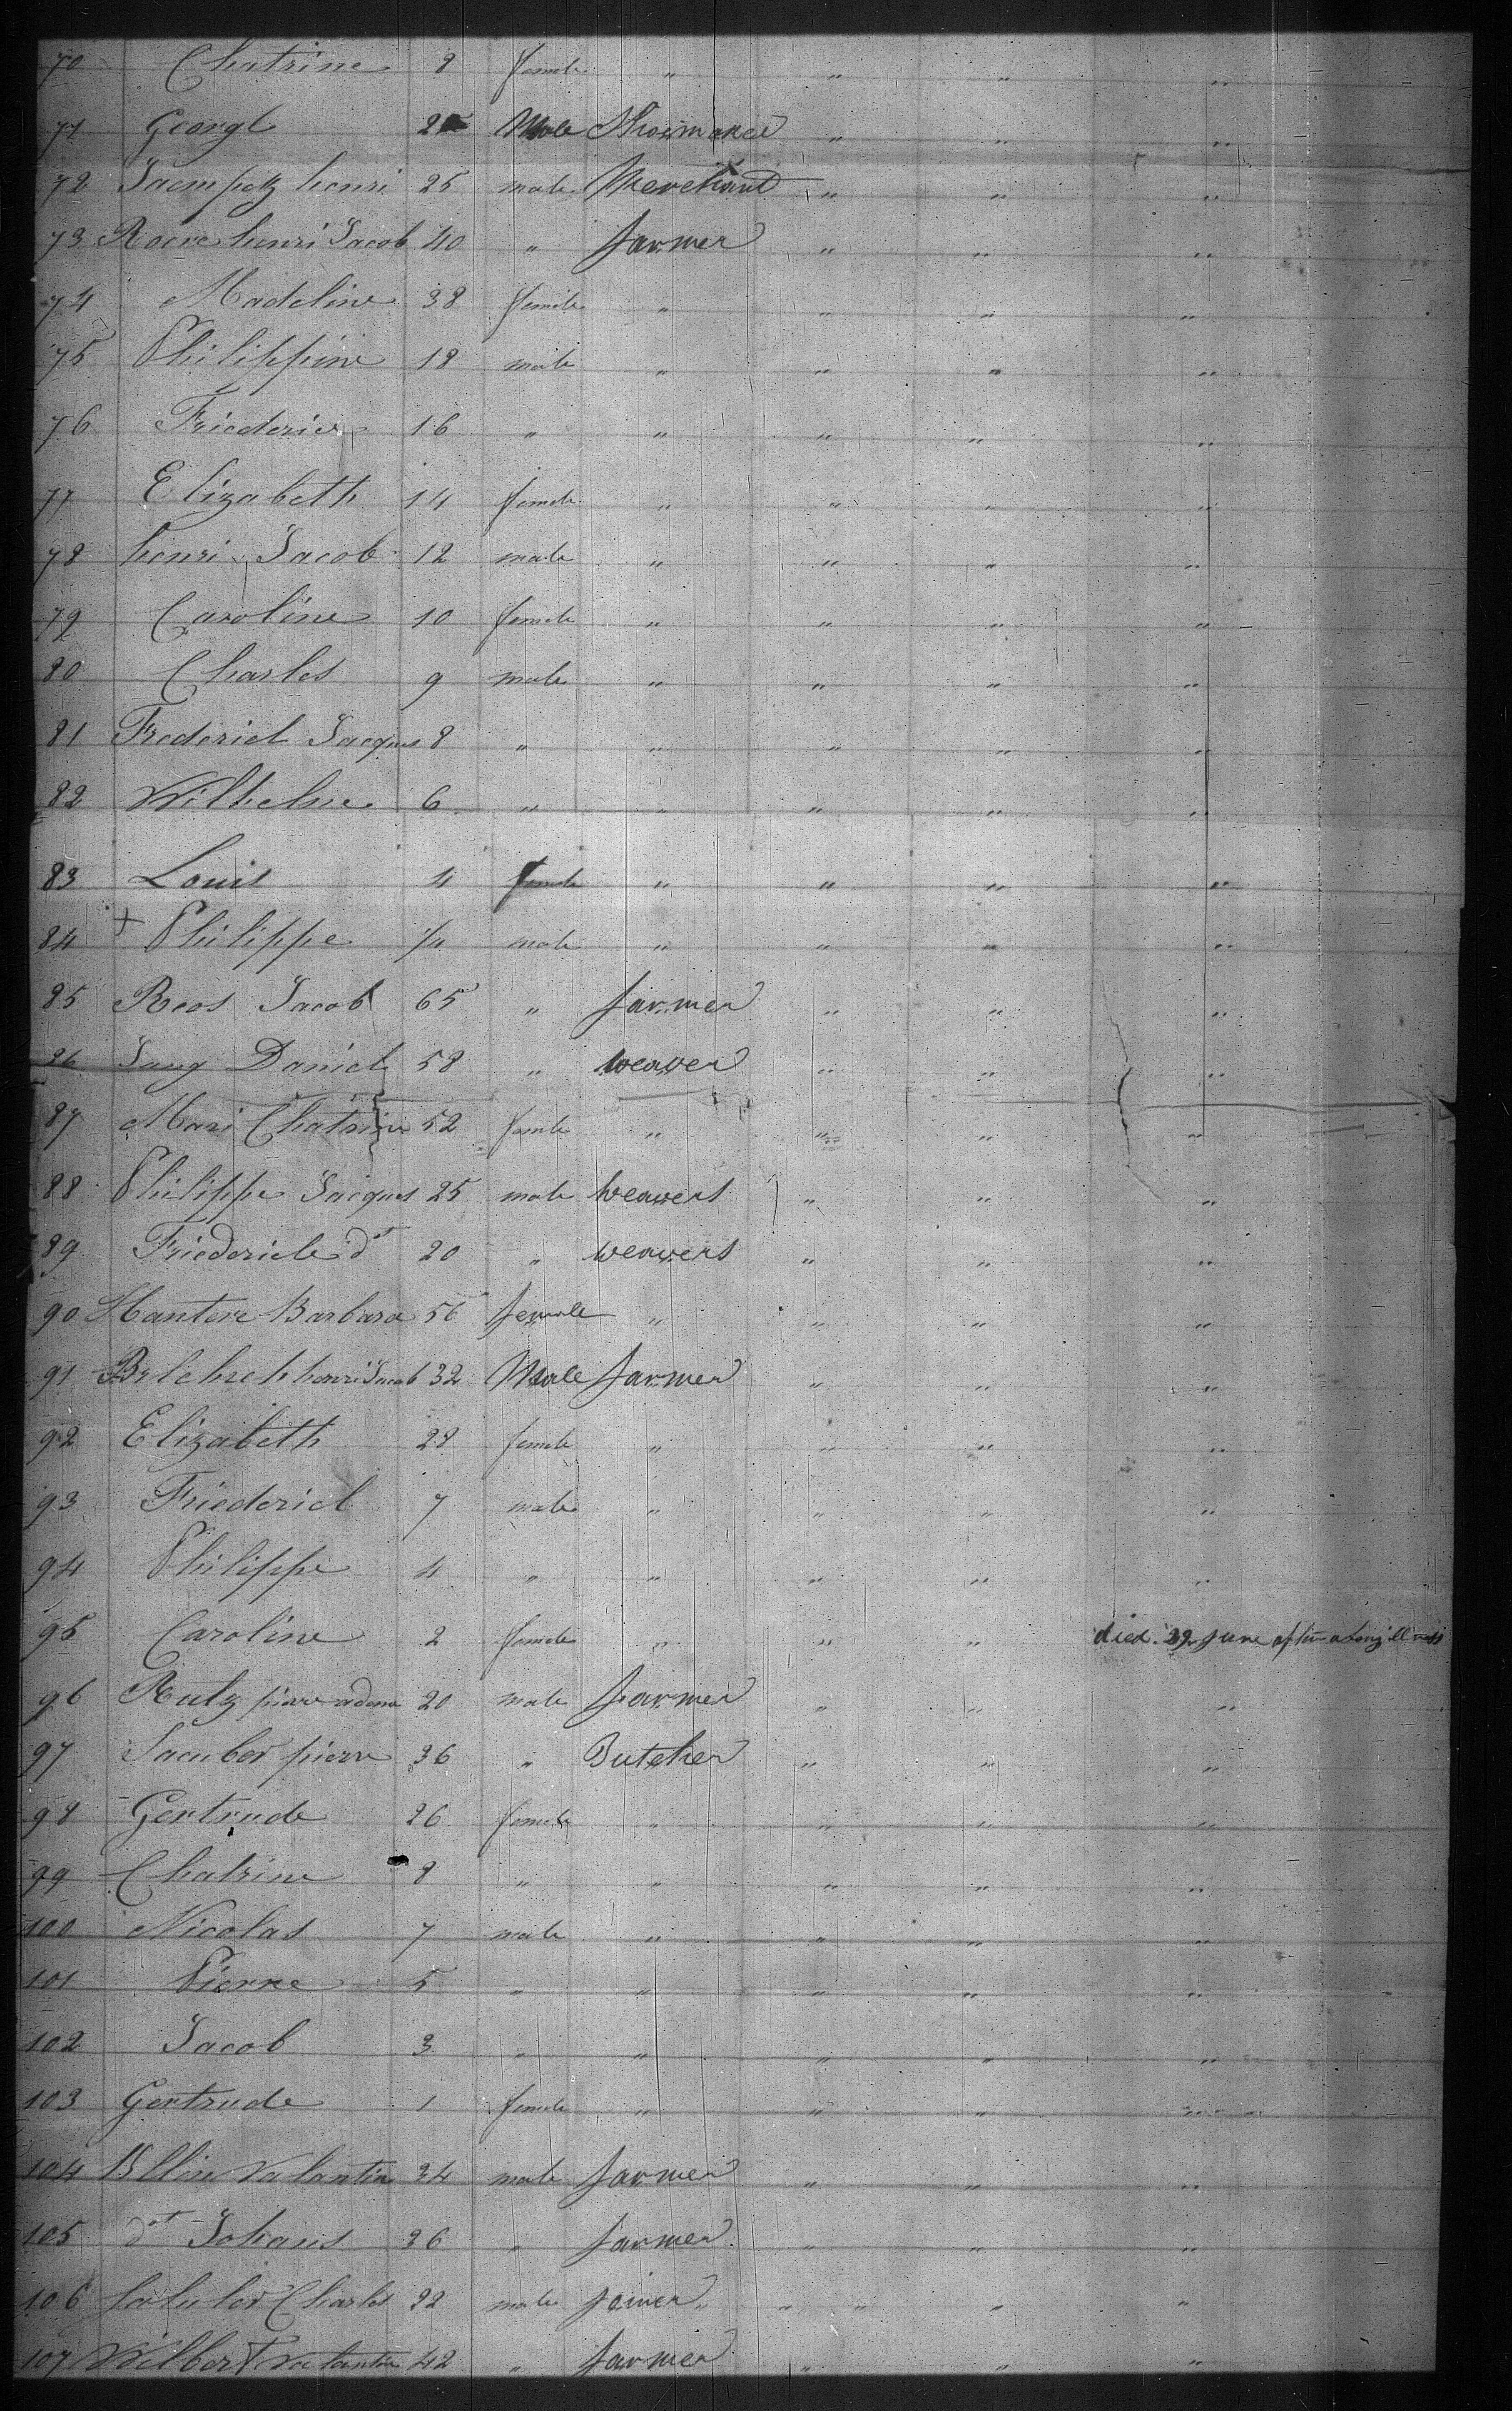 70 Chatrine 8 female " " " "
71 Georgl 25 Male Shoemaker " " "
72 Jaempetz henri 25 male Merchant " " "
73 Roeve henri Jacob 40 " farmer " " "
74 Madeline 38 female " " " "
75 Philippine 18 male " " " "
76 Friederic 16 " " " " "
77 Elizabeth 14 female " " " "
78 henri Jacob 12 male " " " "
79 Caroline 10 female " " " "
80 Charles 9 male " " " "
81 Frederick Jacques 8 " " " " "
82 Wilhelme 6 " " " " "
83 Louis 4 female " " " "
84 + Philippe male " " " "
85 Reos Jacob 65 " farmer " " "
86 Jung Daniel 58 " weaver " " "
87 Mari Chatrine 52 female " " " "
88 Philippe Jacques 25 male weavers " " "
89 Friederick dt 20 " weavers " " "
90 Hantere Barbara 56 female " " " "
91 henri Jacob 32 Male farmer " " "
92 Elizabeth 28 female " " " "
93 Friederick 7 male " " " "
94 Philippe 4 " " " " "
95 Caroline 2 female " " " died 29 June after a long illness
96 Rulz pierre adam 20 male farmer " " "
97 Jacuber pierre 36 " Butcher " " "
98 Gertrude 26 female " " " "
99 Chatrine 8 " " " " "
100 Nicolas 7 male " " " "
101 Pierre 5 " " " " "
102 Jacob 3 " " " " "
103 Gertrude 1 female " " " "
104 Valantin 34 male farmer " " "
105 dt Johans 36 " farmer " " "
106 Charles 22 male joiner " " " "
107 Wilbert Valantin 42 " farmer " " "